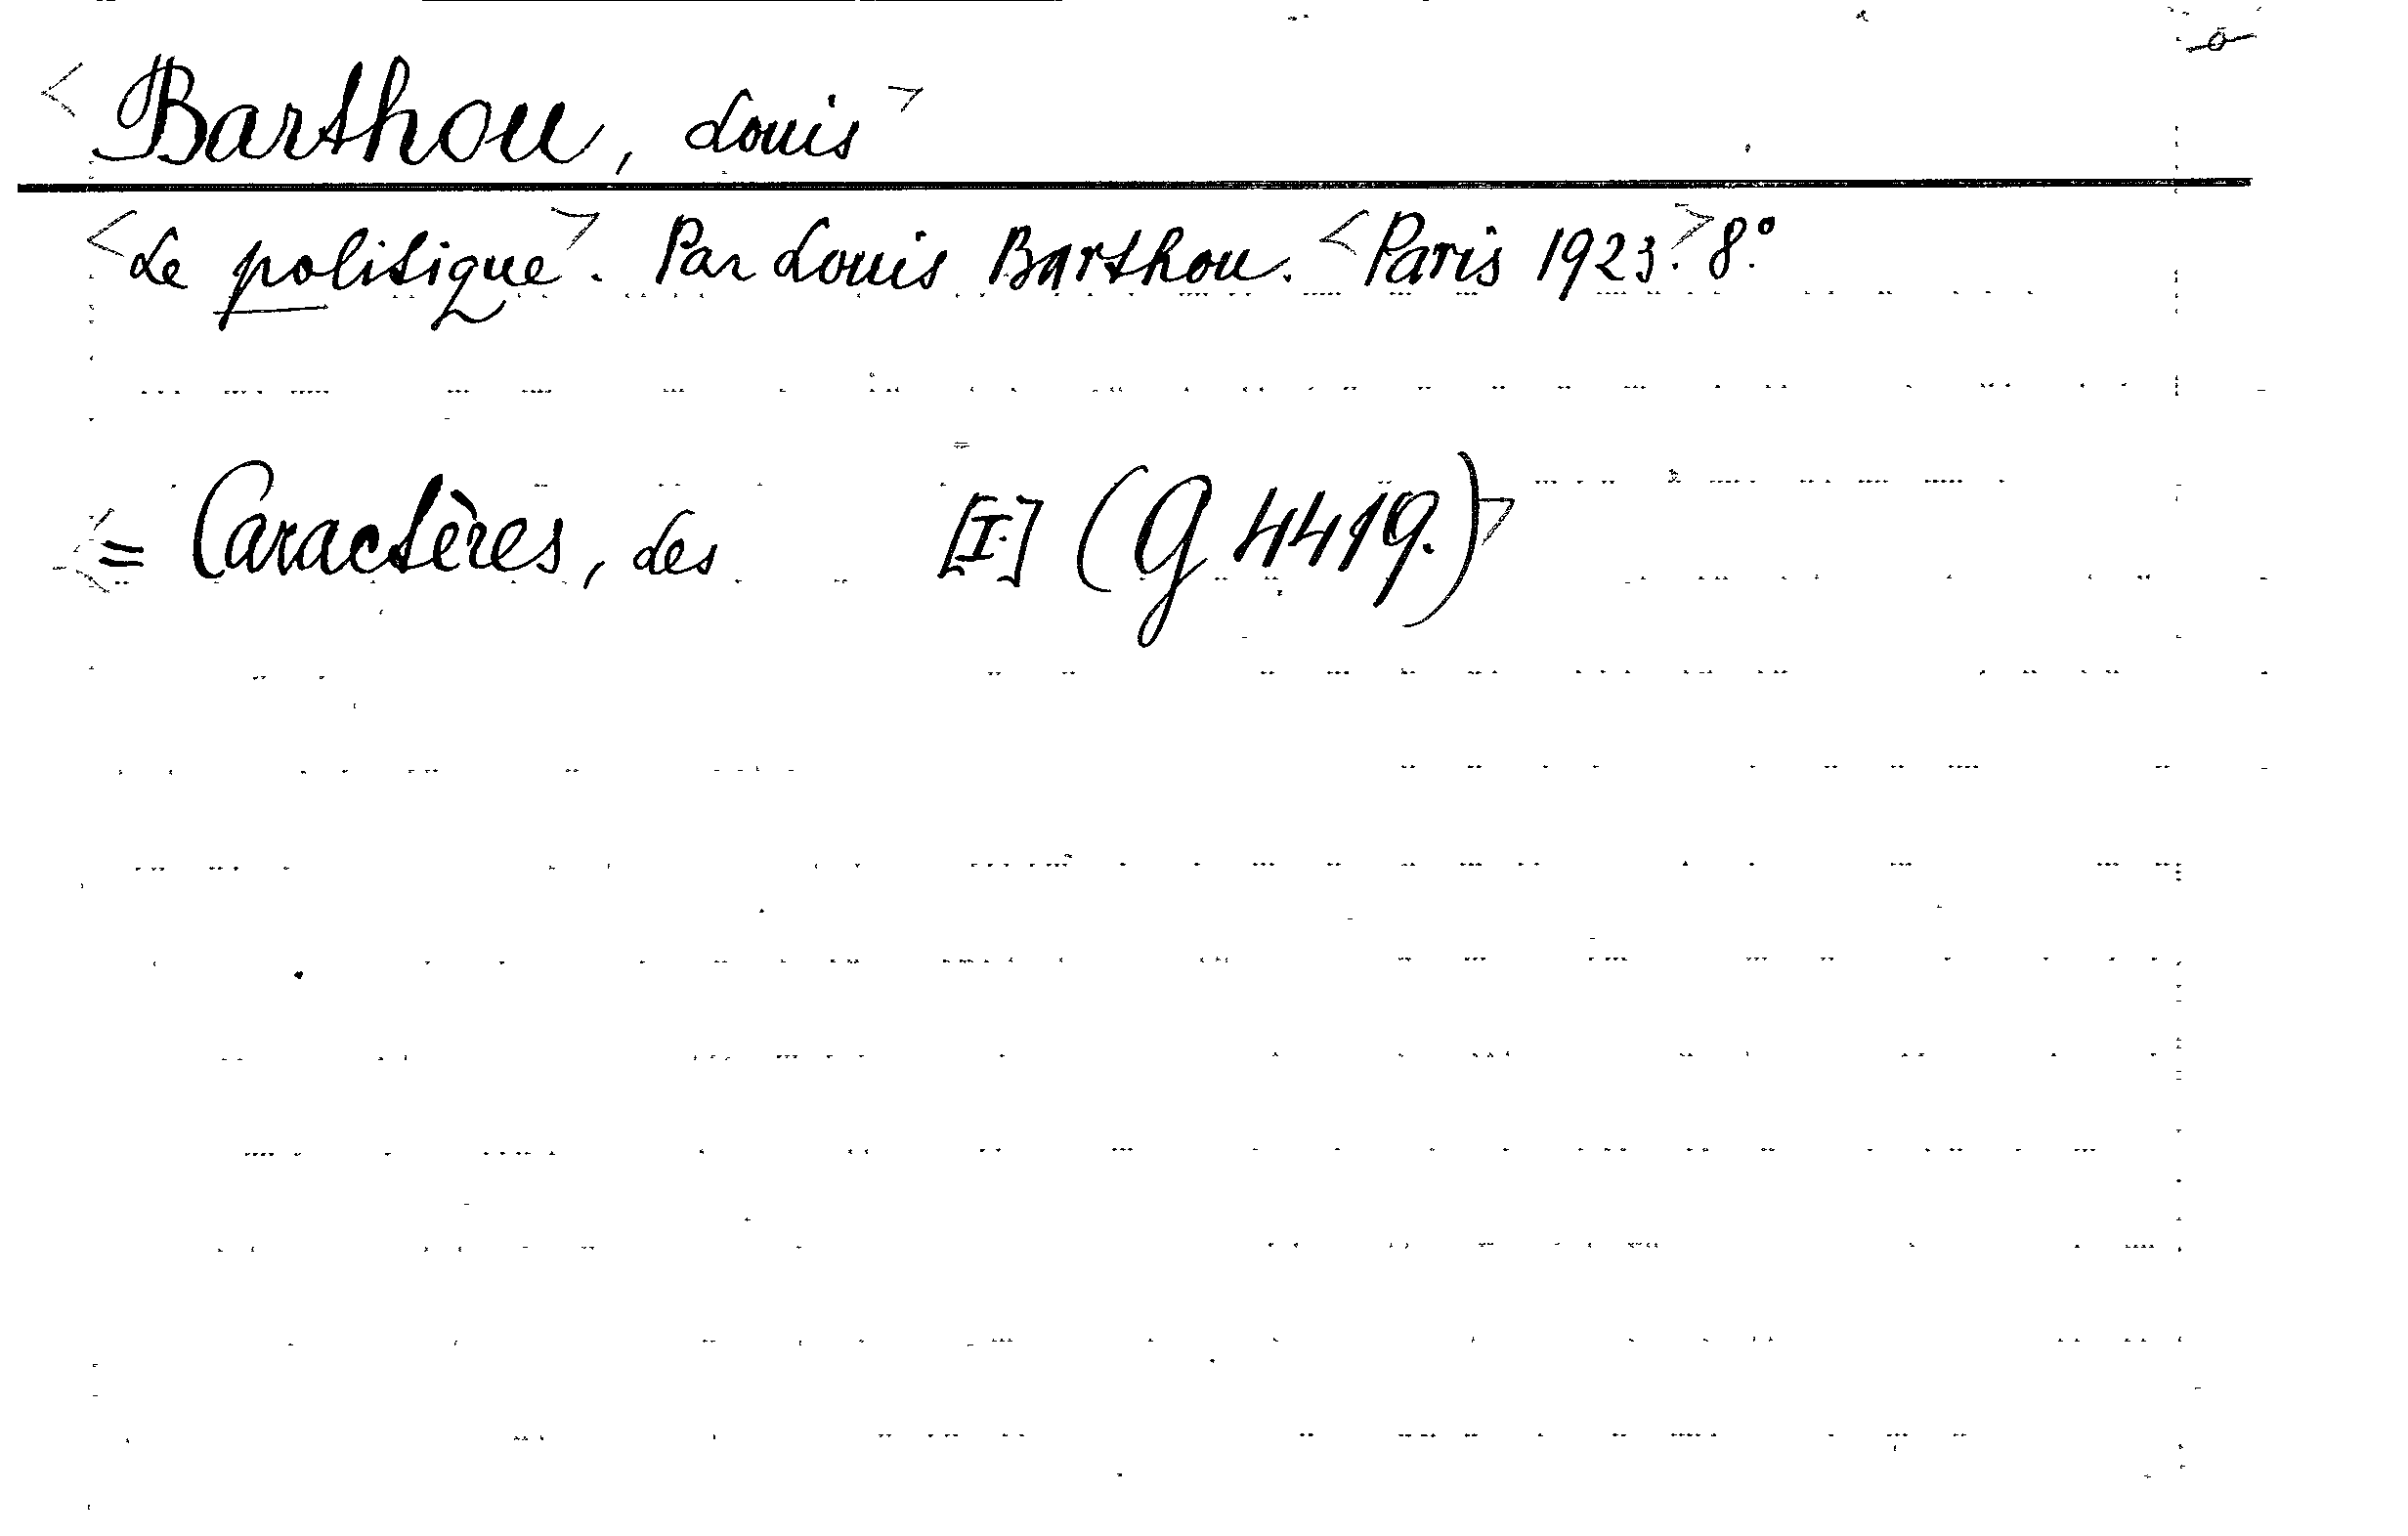 <Barthou, Louis>
<Le politique>. Par Louis Barthou. <Paris 1923.> 8°.
<= Caractères, des [I.] (G 4419.)>